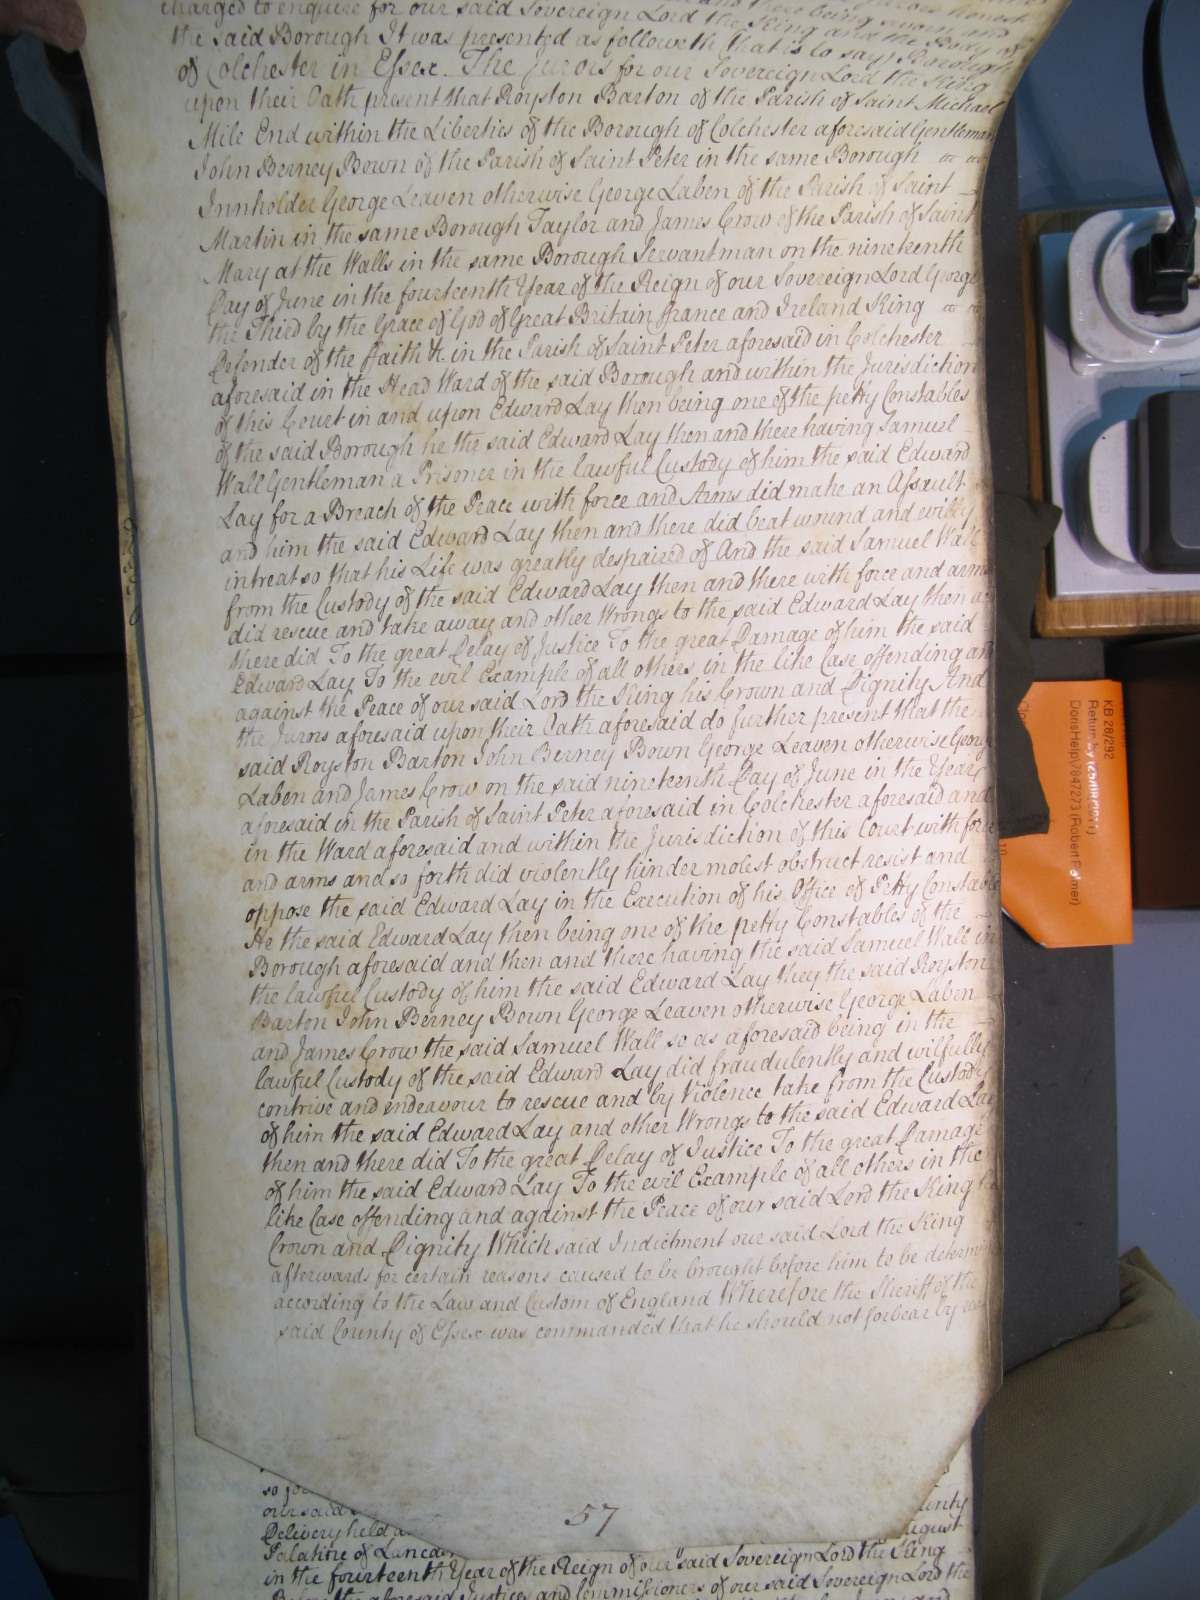 charged to enquire for our said Sovereign Lord the King and the Body of
the said Borough It was presented as followeth (that is to say) Borough
of Colchester in Essex. The Jurors for our Sovereign Lord the King
upon their Oath present that Royston Barton of the Parish of Saint Michael
Mile End within the Liberties of the Borough of Colchester aforesaid Gentleman
John Berney Bown of the Parish of Saint Peter in the same Borough
Innholder George Leaven otherwise George Laben of the Parish of Saint
Martin in the same Borough Taylor and James Crow of the Parish of Saint
Mary at the Walls in the same Borough Servantman on the nineteenth
Day of June in the fourteenth Year of the Reign of our Sovereign Lord George
the Third by the Grace of God of Great Britain france and Ireland King
Defender of the ffaith &c in the Parish of Saint Peter aforesaid in Colchester
aforesaid in the Head Ward of the said Borough and within the Jurisdiction
of this Court in and upon Edward Lay then being one of the petty Constables
of the said Borough he the said Edward Lay then and there having Samuel
Wall Gentleman a Prisoner in the lawful Custody of him the said Edward
Lay for a Breach of the Peace with force and Arms did make an Assault
and him the said Edward Lay then and there did beat wound and evilly
intreat so that his Life was greatly despaired of And the said Samuel Wall
from the Custody of the said Edward Lay then and there with force and arms
did rescue and take away and other Wrongs to the said Edward Lay then and
there did To the great Delay of Justice To the great Damage of him the said
Edward Lay To the evil Example of all others in the like Case offending and
against the Peace of our said Lord the King his Crown and Dignity And
the Jurors aforesaid upon their Oath aforesaid do further present that the
said Royston Barton John Berney Bown George Leaven otherwise George
Laben and James Crow on the said nineteenth Day of June in the Year
aforesaid in the Parish of Saint Peter aforesaid in Colchester aforesaid and
in the Ward aforesaid and within the Jurisdiction of this Court with force
and arms and so forth did violently hinder molest obstruct resist and
oppose the said Edward Lay in the Execution of his Office of Petty Constable
He the said Edward Lay then being one of the petty Constables of the
Borough aforesaid and then and there having the said Samuel Wall in
the lawful Custody of him the said Edward Lay they the said Royston
Barton John Berney Bown George Leaven otherwise George Laben
and James Crow the said Samuel Wall so as aforesaid being in the
lawful Custody of the said Edward Lay did fraudulently and wilfully
contrive and endeavour to rescue and by Violence take from the Custody
of him the said Edward Lay and other Wrongs to the said Edward Lay
then and there did To the great Delay of Justice To the great Damage
of him the said Edward Lay To the evil Example of all others in the
like Case offending and against the Peace of our said Lord the King his
Crown and Dignity Which said Indictment our said Lord the King
afterwards for certain reasons caused to be brought before him to be determ
according to the Law and Custom of England Wherefore the Sheriff of the
said County of Essex was commanded that he should not forbear by
57
our said
Delivery held August
Palatine of Lancas
in the fourteenth Year of the Reign of our said Sovereign Lord the King
Before the aforesaid Justices and Commissioners of our said Sovereign Lord the
KB 28/292
Return by (25/08/2011)
DorisHelp\7847273 (Robert Palmer)